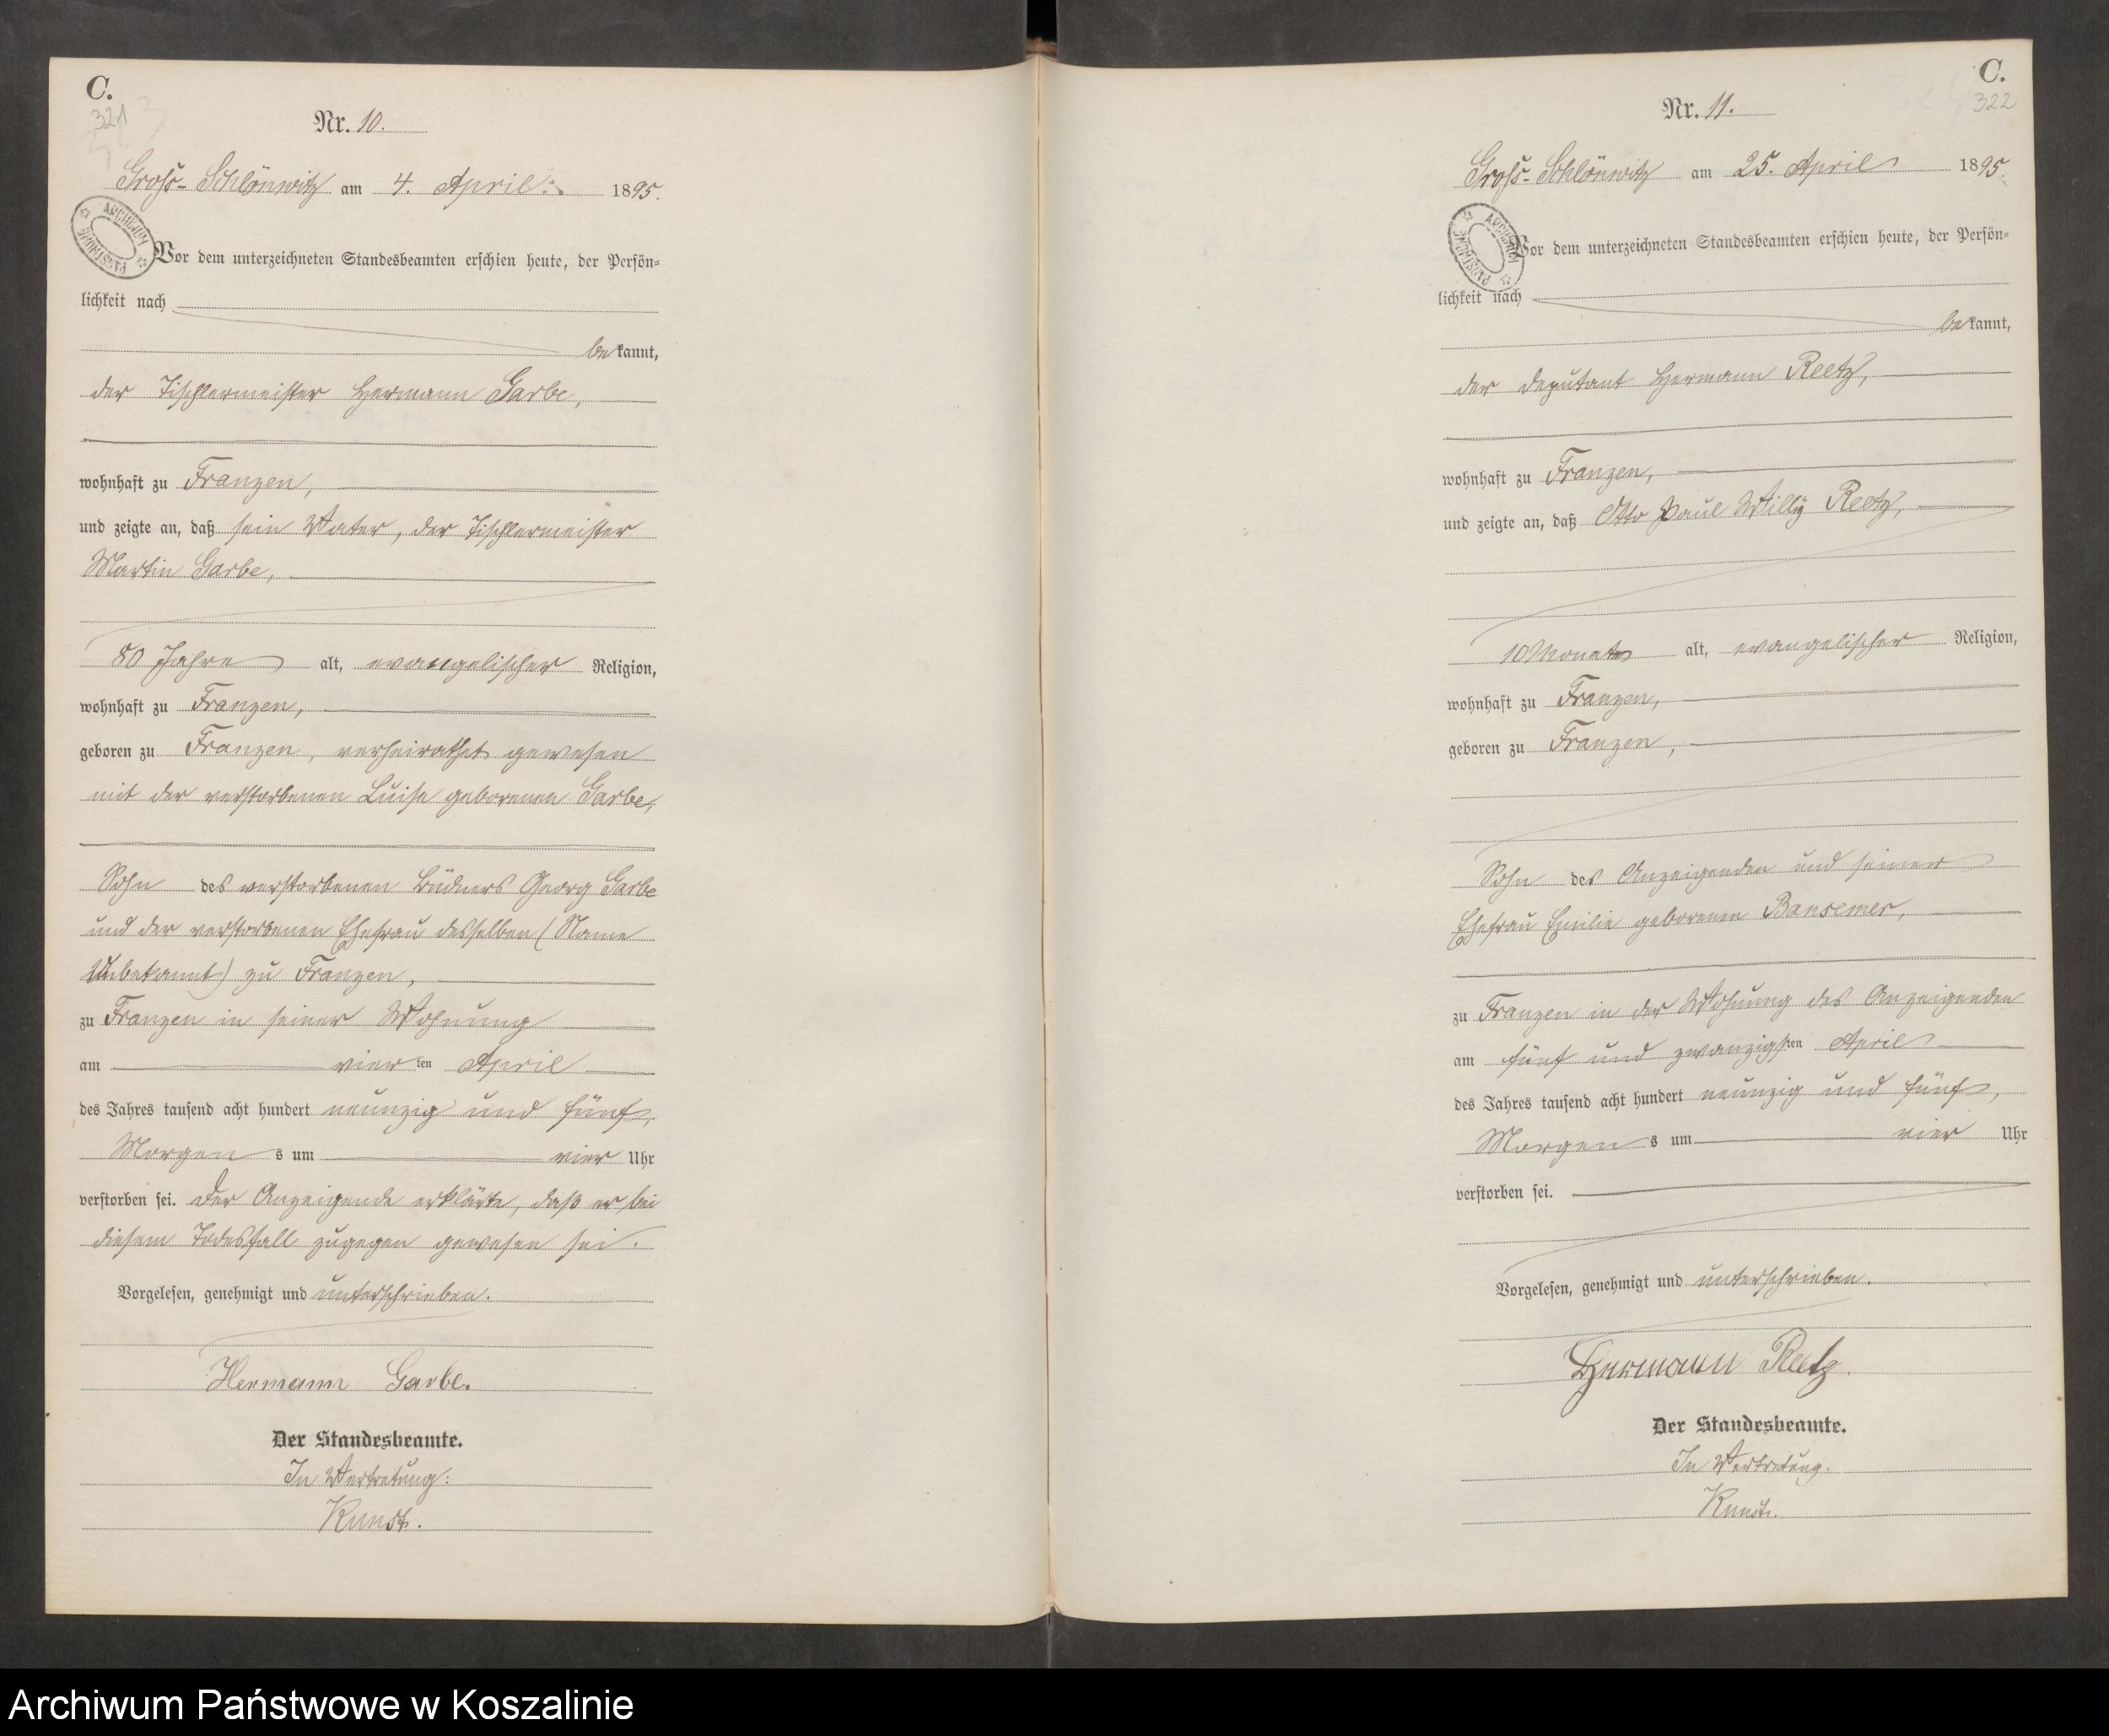 C.
321
Nr. 10.
Groß-Schlönwitz am 4. April 1895.
ARCHIWUM PAŃSTWOWE
Vor dem unterzeichneten Standesbeamten erschien heute, der Persön-
lichkeit nach
bekannt,
der Tischlermeister Hermann Garbe,
wohnhaft zu Franzen,
und zeigte an, daß sein Vater, der Tischlermeister
Martin Garbe,
80 Jahre alt, evangelischer Religion,
wohnhaft zu Franzen,
geboren zu Franzen, verheirathet gewesen
mit der verstorbenen Luise geborenen Garbe,
Sohn des verstorbenen Büdners Georg Garbe
und der verstorbenen Ehefrau desselben (Name
Unbekannt) zu Franzen,
zu Franzen in seiner Wohnung
am vierten April
des Jahres tausend acht hundert neunzig und fünf,
Morgens um vier Uhr
verstorben sei. Der Anzeigende erklärte, daß er bei
diesem Todesfall zugegen gewesen sei.
Vorgelesen, genehmigt und unterschrieben.
Hermann Garbe.
Der Standesbeamte.
In Vertretung:
Kunst.
C.
322
Nr. 11.
Groß-Schlönwitz am 25. April 1895.
ARCHIWUM PAŃSTWOWE
Vor dem unterzeichneten Standesbeamten erschien heute, der Persön-
lichkeit nach
bekannt,
der Deputant Hermann Reetz,
wohnhaft zu Franzen,
und zeigte an, daß Otto Paul Willy Reetz,
10 Monate alt, evangelischer Religion,
wohnhaft zu Franzen,
geboren zu Franzen,
Sohn des Anzeigenden und seiner
Ehefrau Emilie geborenen Bansemer,
zu Franzen in der Wohnung des Anzeigenden
am fünf und zwanzigsten April
des Jahres tausend acht hundert neunzig und fünf,
Morgens um vier Uhr
verstorben sei.
Vorgelesen, genehmigt und unterschrieben.
Hermann Reetz.
Der Standesbeamte.
In Vertretung.
Kunst.
Archiwum Państwowe w Koszalinie